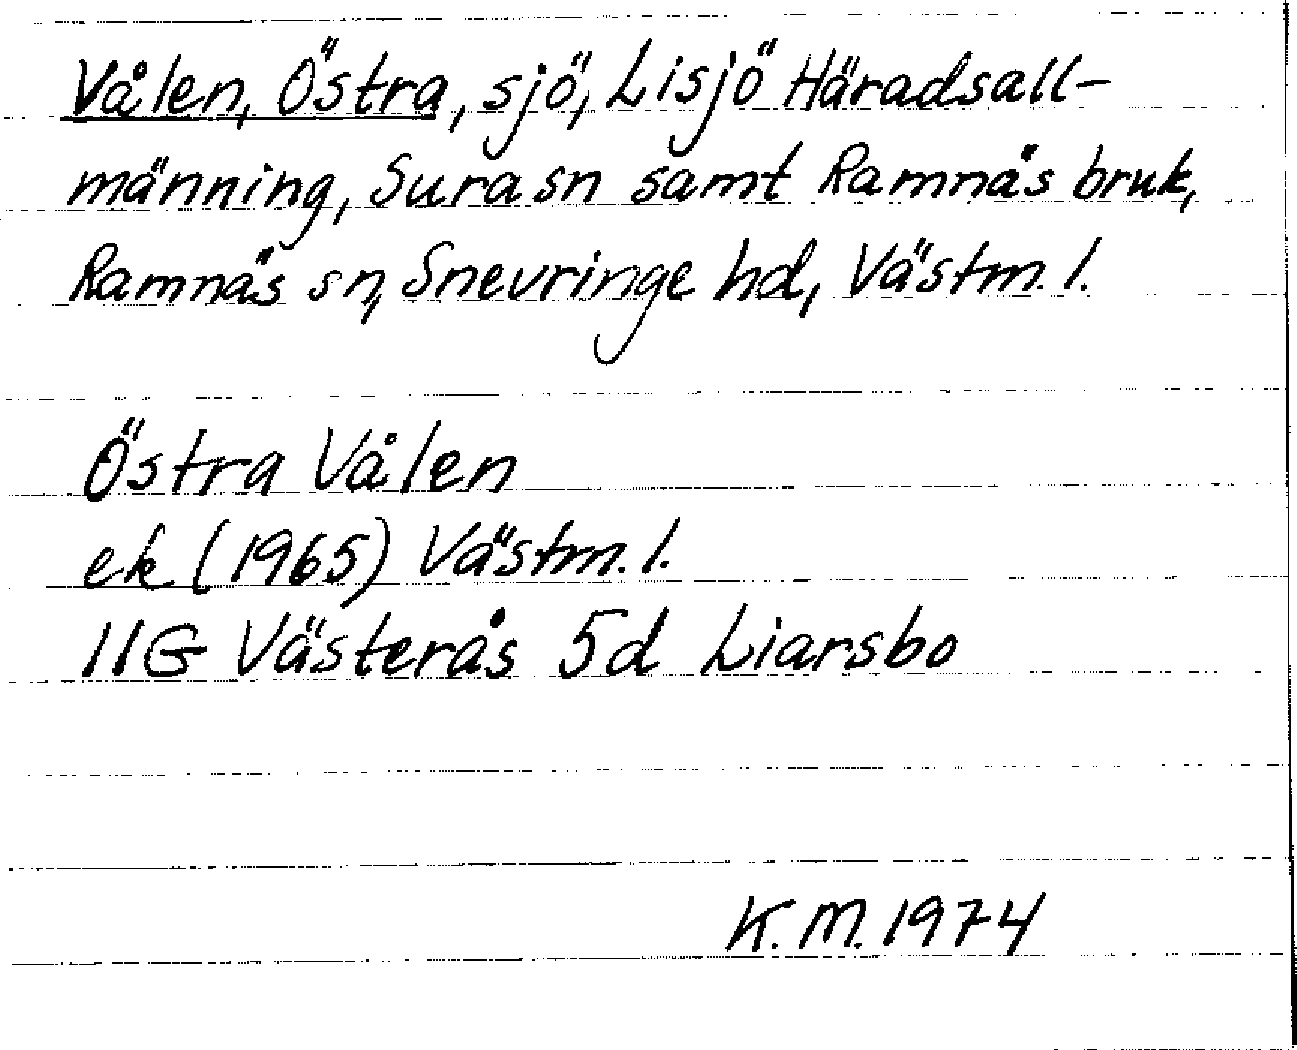 Vålen, Östra, sjö, Lisjö Häradsall-
männing, Sura sn samt Ramnäs bruk,
Ramnäs sn, Snevringe hd, Västm. l.
Östra Vålen
ek (1965) Västm. l.
11G Västerås 5d Liarsbo
K. M. 1974